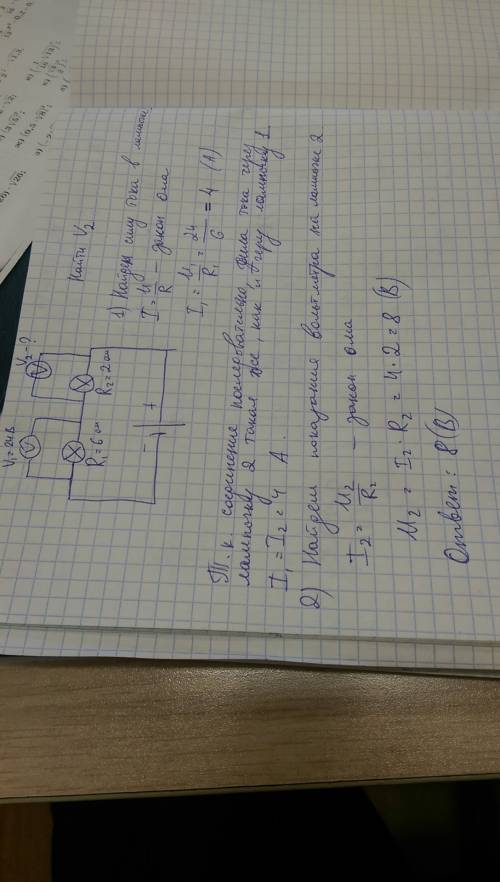 V₁=24В
V₂-?
V
V
R₁=6 ом
R₂=2 ом
- +
Найти V₂
1) Найдем силу тока в лампочке
I = U/R - закон ома
I₁ = U₁/R₁ = 24/6 = 4 (А)
Т.к. соединение последовательно, сила тока через
лампочку 2 такая же, как и через лампочку 1.
I₁ = I₂ = 4 А.
2) Найдем показания вольтметра на лампочке 2
I₂ = U₂/R₂ - закон ома
U₂ = I₂ · R₂ = 4 · 2 = 8 (В)
Ответ: 8 (В)